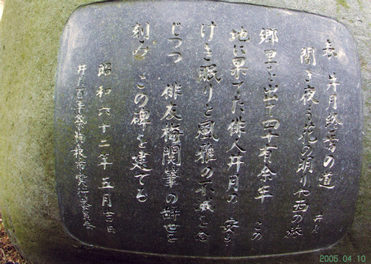 井月終焉の道
闇き夜も花の明りや西の旅 井月
郷里を出て四十有余年 この
地に果てた俳人井月の 安ら
けき眠りと風雅の
じつつ 俳友梅関筆の辞世を
刻み この碑を建てる
昭和六十二年五月吉日
2005.04.10